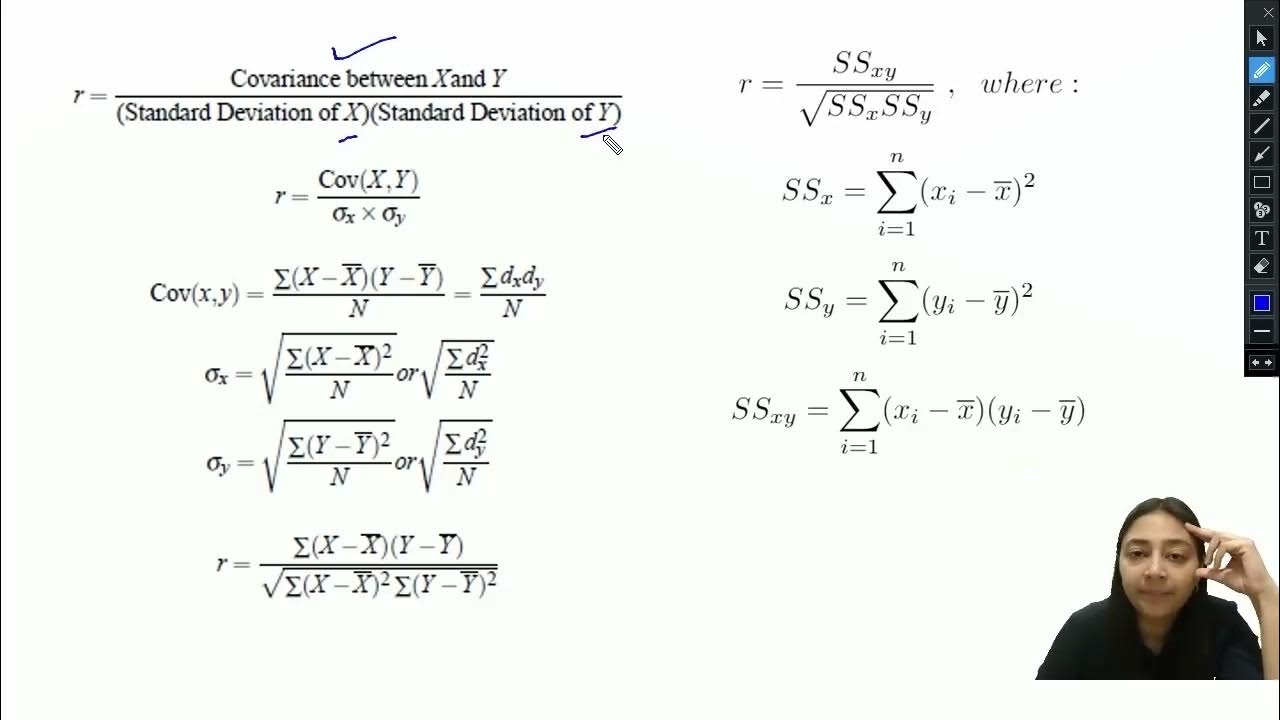 r = Covariance between X and Y / (Standard Deviation of X)(Standard Deviation of Y)
r = Cov(X,Y) / σx × σy
Cov(x,y) = Σ(X − X̅)(Y − Y̅) / N = Σdxdy / N
σx = √(Σ(X − X̅)² / N) or √(Σd²x / N)
σy = √(Σ(Y − Y̅)² / N) or √(Σd²y / N)
r = Σ(X − X̅)(Y − Y̅) / √Σ(X − X̅)² Σ(Y − Y̅)²
r = SSxy / √SSxSSy , where :
SSx = ∑ⁿᵢ₌₁ (xᵢ − x̅)²
SSy = ∑ⁿᵢ₌₁ (yᵢ − y̅)²
SSxy = ∑ⁿᵢ₌₁ (xᵢ − x̅)(yᵢ − y̅)
T